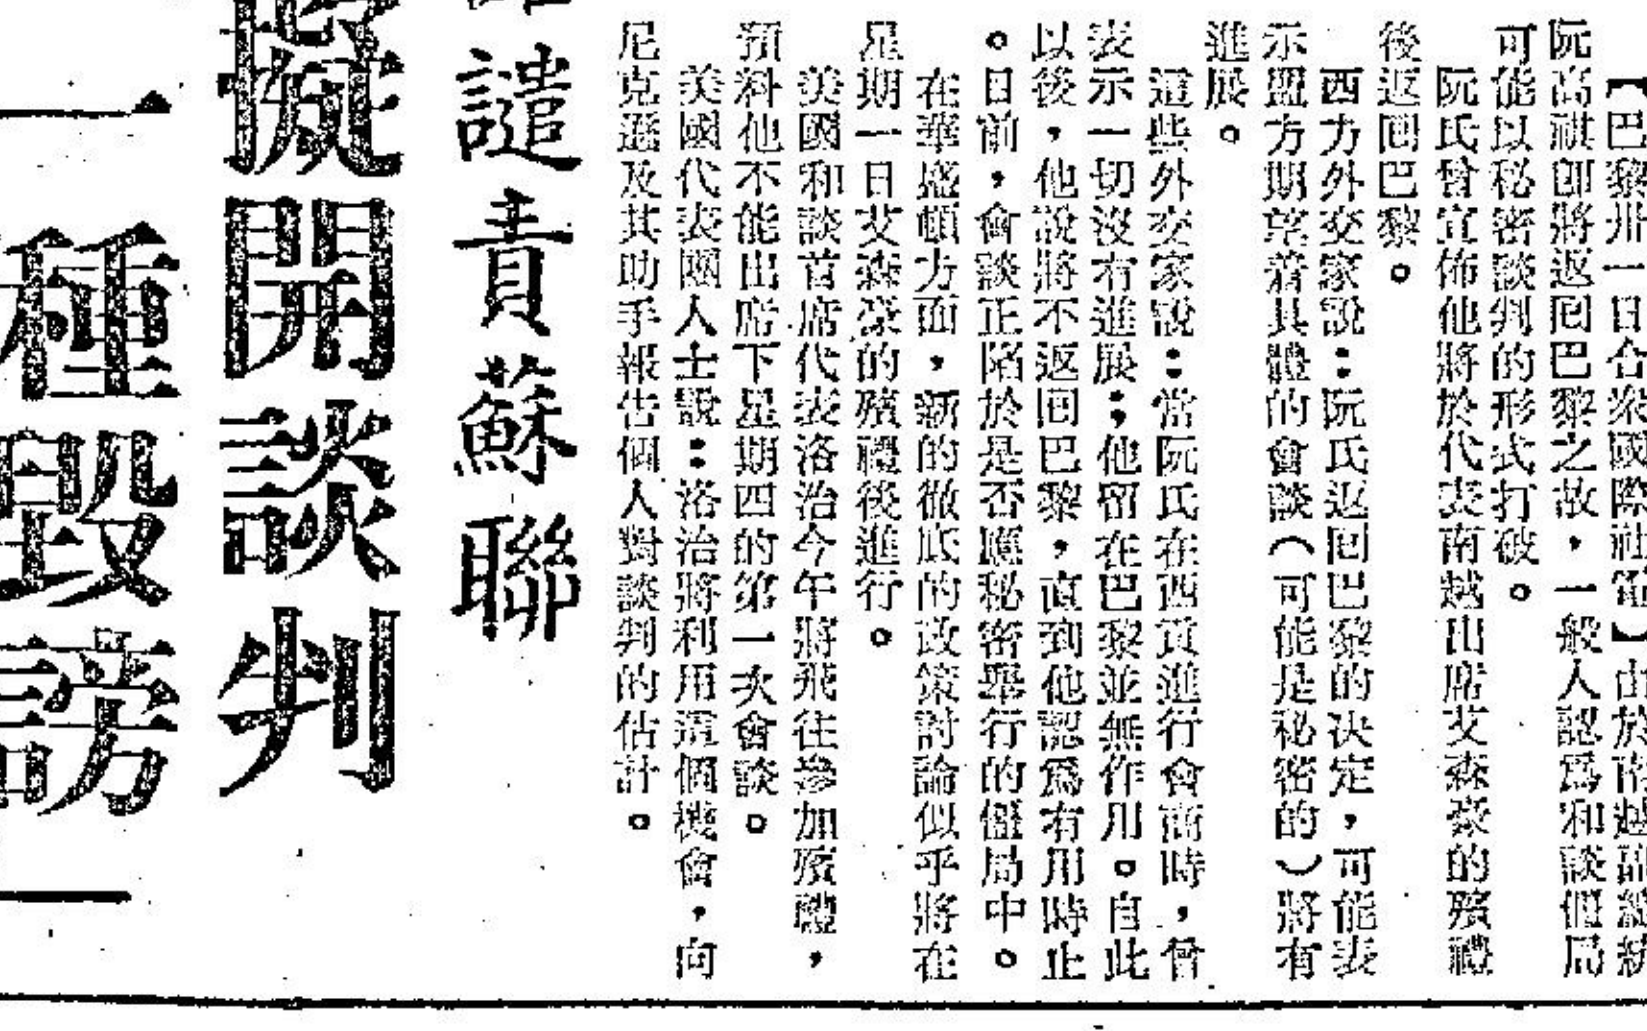 【巴黎卅一日合衆國際社電】由於南越副總統
阮高祺卽將返囘巴黎之故，一般人認爲和談僵局
可能以秘密談判的形式打破。
阮氏曾宣佈他將於代表南越出席艾森豪的殯禮
後返囘巴黎。
西力外交家說：阮氏返囘巴黎的决定，可能表
示盟方期望着具體的會談（可能是秘密的）將有
進展。
這些外交家說：當阮氏在西貢進行會商時，曾
表示一切沒有進展；他留在巴黎並無作用。自此
以後，他說將不返囘巴黎，直到他認爲有用時止
。日前，會談正陷於是否應秘密舉行的僵局中。
在華盛頓方面，新的徹底的政策討論似乎將在
星期一日艾森豪的殯禮後進行。
美國和談首席代表洛治今午將飛往參加殯禮，
預料他不能出席下星期四的第一次會談。
美國代表團人士說：洛治將利用這個機會，向
尼克遜及其助手報告個人對談判的估計。
譴責蘇聯
擬開談判
一種毀謗一